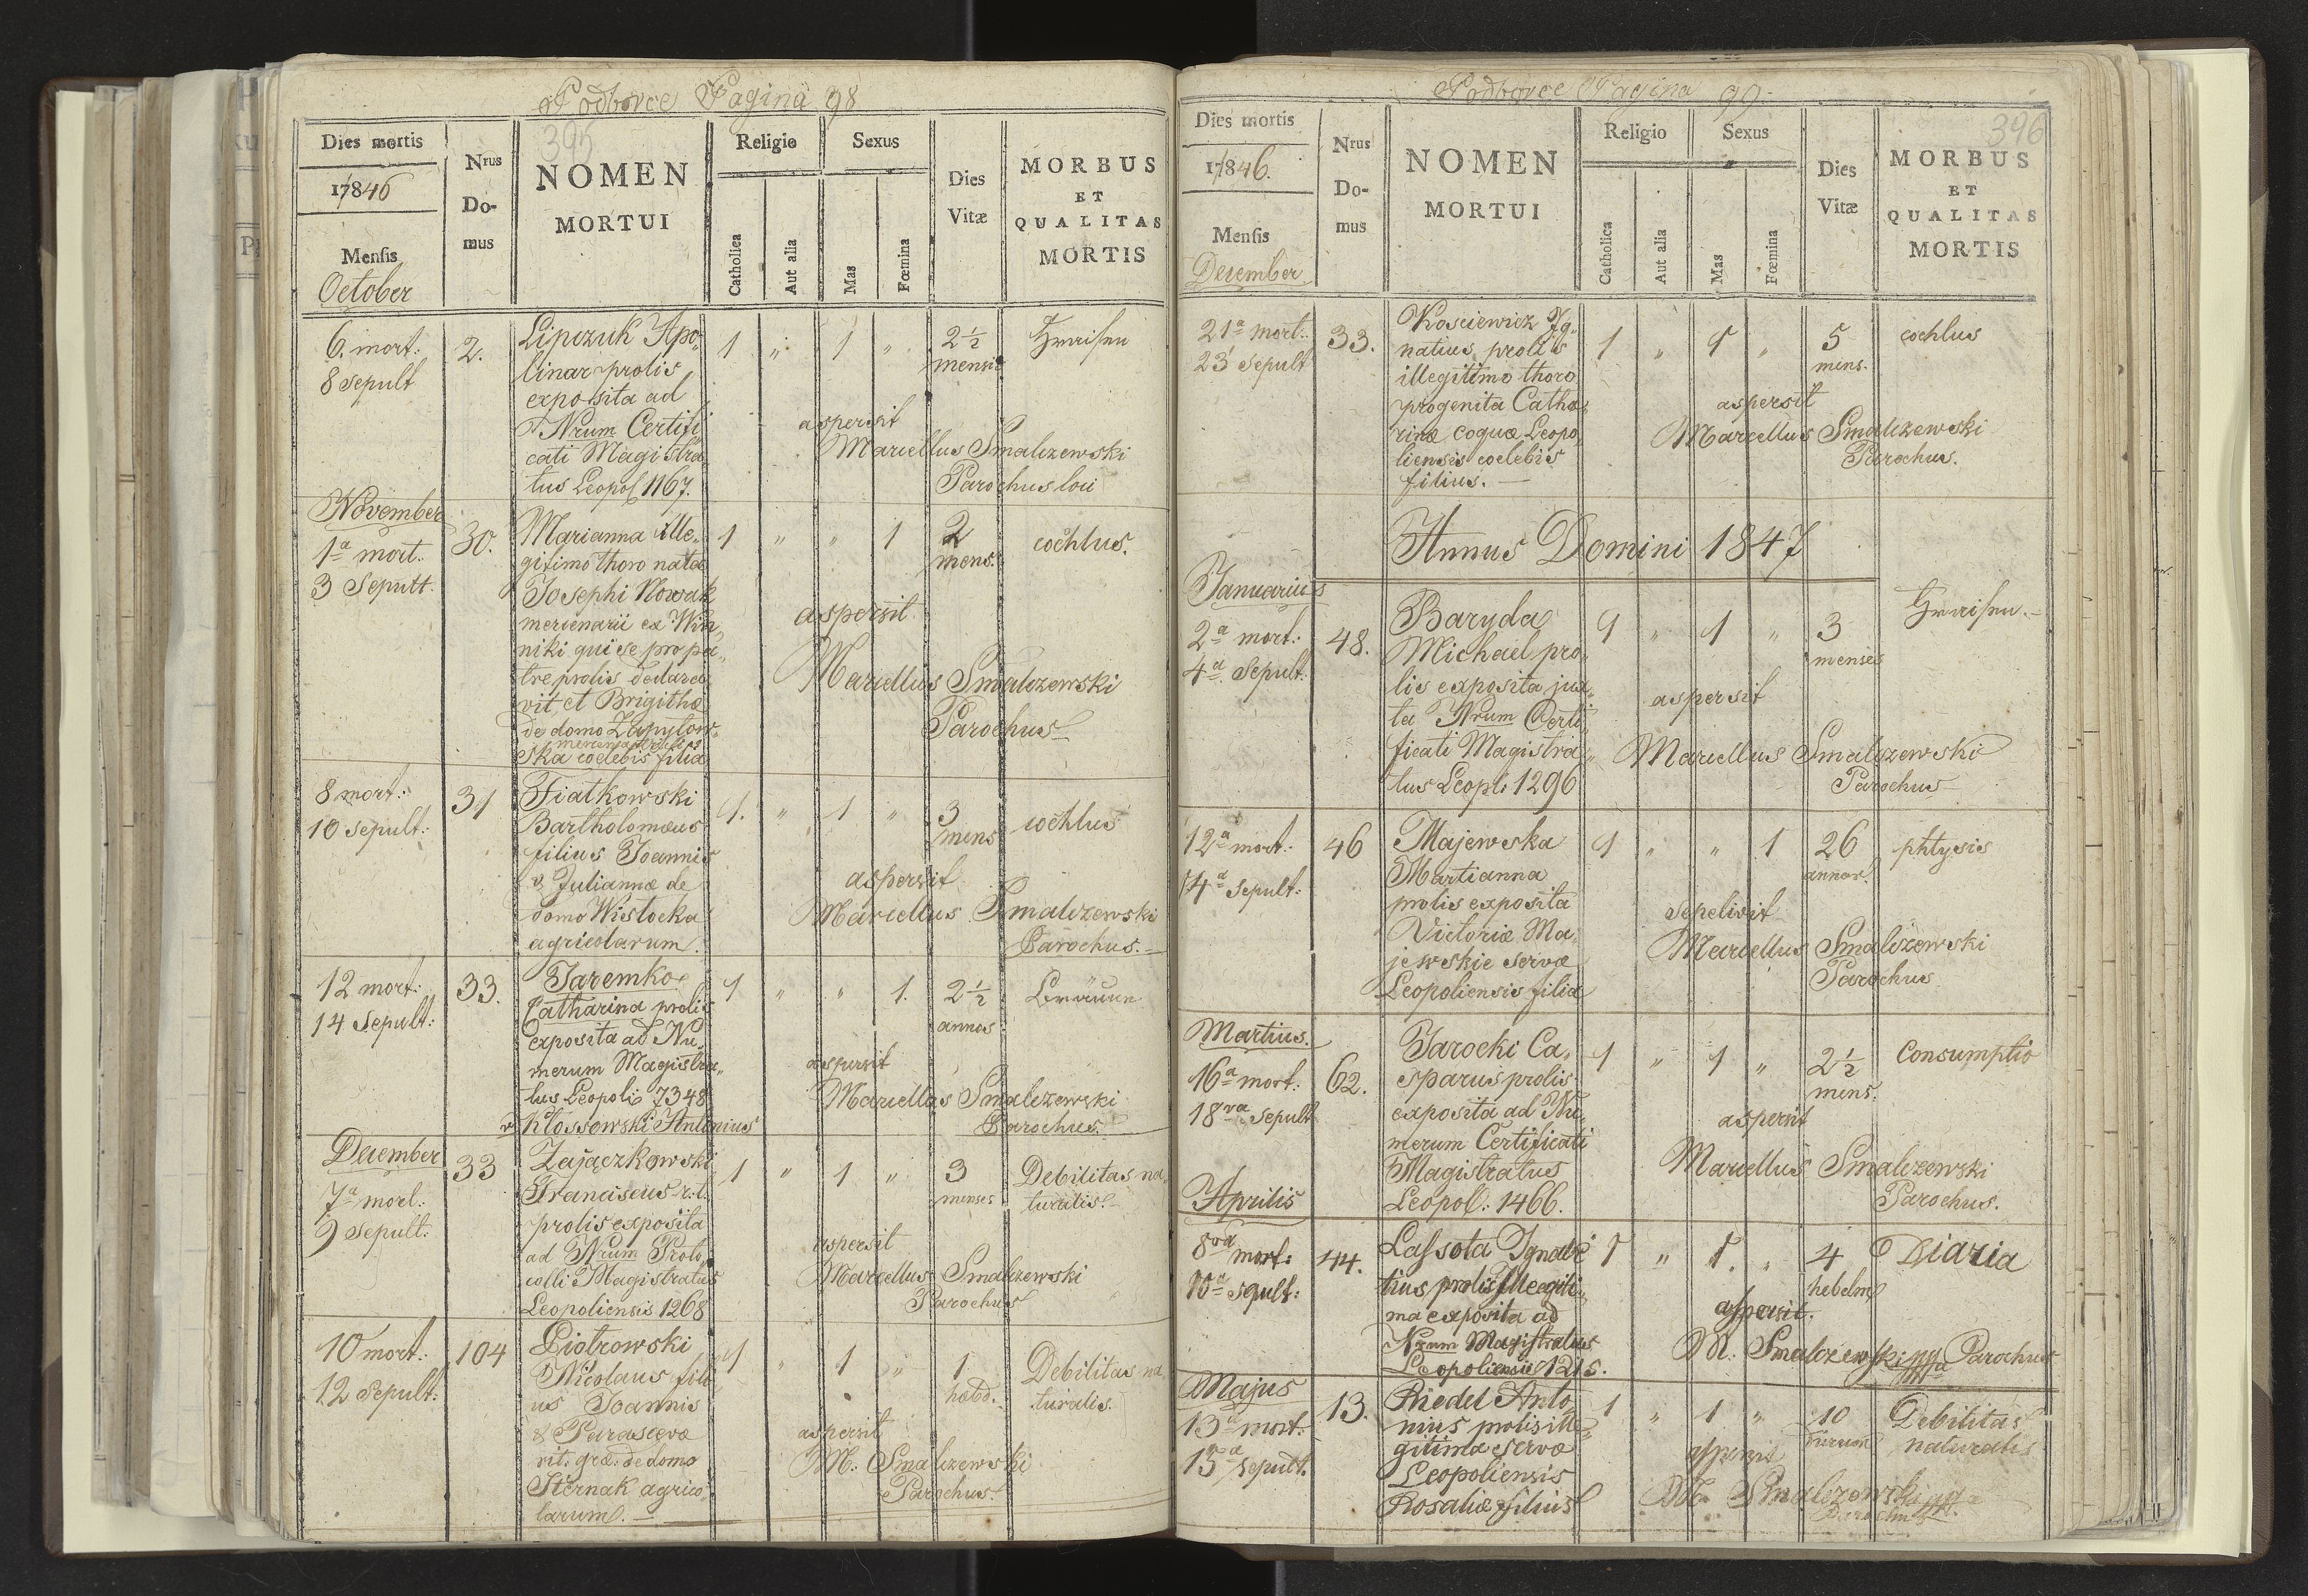 Podborce Pagina 98
395
Dies mortis
17846
Mensis
October
Nrus
Do-
mus
NOMEN
MORTUI
Religio
Catholica
Aut alia
Sexus
Mas
Fœmina
Dies
Vitæ
MORBUS
ET
QUALITAS
MORTIS
6. mort.:
8 Sepult
2.
Lipczuk Apo„
linar prolis
exposita ad
Nrum Certifi
cati Magistra„
tus Leopol 1167.
1 „ 1 „
2½
mensis
aspersit
Marcellus Smalczewski
Parochus loci
November
1a mort.:
3 Sepult.
30.
Marianna ille„
gitimo thoro nata
Josephi Nowak
mercenarii ex Win„
niki qui se pro pa„
tre prolis declara„
vit, et Brigithæ
de domo Zapytow„
ska coelebis filia
1 „ „ 1
2
mens.
cochlus.
aspersit
Marcellus Smalczewski
Parochus
8 mort.:
10 Sepult.:
31
Fiatkowski
Bartholomæus
filius Joannis
& Juliannæ de
domo Wistocka
agricolarum.
1. „ 1 „
3
mens
cochlus
aspersit
Marcellus Smalczewski
Parochus. —
12 mort.:
14 Sepult.:
33.
Jaremko
Catharina prolis
exposita ad Nu„
merum Magistra„
tus Leopoli 7348
v Kłossowski Antonius
1 „ „ 1.
2½
annos
aspersit
Marcellus Smalczewski
Parochus.
December
7a mort.:
9 Sepult.:
33
Zajączkowski
Franciscus r.l.
prolis exposita
ad Nrum Proto„
colli Magistratus
Leopoliensis 1268
1 „ 1 „
3
menses
Debilitas na„
turalis. —
aspersit
Marcellus Smalczewski
Parochus
10 mort.:
12 Sepult.:
104
Piotrowski
Nicolaus fili„
us Joannis
& Parascevæ
rit: græ: de domo
Sternak agrico„
larum. —
1 „ 1 „
1
hebd.
Debilitas na„
turalis.
aspersit
M. Smalczewski
Parochus.
Podborce Pagina 99.
396
Dies mortis
17846.
Mensis
December
Nrus
Do-
mus
NOMEN
MORTUI
Religio
Catholica
Aut alia
Sexus
Mas
Fœmina
Dies
Vitæ
MORBUS
ET
QUALITAS
MORTIS
21a mort.:
23 Sepult
33.
Kosciewicz Ig„
natius prolis
illegitimo thoro
progenita Catha„
rinæ coquæ Leopo„
liensis coelebis
filius. —
1 „ 1 „
5
mens.
cochlus
aspersit
Marcellus Smalczewski
Parochus.
Annus Domini 1847
Januarius
2a mort.:
4a Sepult.:
48.
Baryda
Michael pro„
lis exposita jux„
ta Nrum Certi„
ficati Magistra„
tus Leopl: 1296
1 „ 1 „
3
menses
aspersit
Marcellus Smalczewski
Parochus
12a mort.:
14a Sepult.:
46
Majewska
Martianna
prolis exposita
Victoriæ Ma„
jewskie servæ
Leopoliensis filia
1 „ „ 1
26
annor.
phtysis
sepelivit
Marcellus Smalczewski
Parochus
Martius.
16a mort.:
18va Sepult
62.
Jarocki Ca„
sparus prolis
exposita ad Nu„
merum Certificati
Magistratus
Leopol.: 1466.
1 „ 1 „
2½
mens.
Consumptio
aspersit
Marcellus Smalczewski
Parochus.
Aprilis
8va mort.:
10a spult.:
44.
Lassota Ignatz
tius prolis Illegiti„
ma exposita ad
Nrum Magistratus
Leopoliensis 1215.
1 „ 1. „
4
hebdm
Diaria
aspersit.
M. Smalczewski Parochus
Majus
13a mort.:
15a sepult.
13.
Riedel Anto„
nius prolis ille„
gitima servæ
Leopoliensis
Rosaliæ filius
1 „ 1 „
10
dierum
Debilitas
naturalis
aspersit
M. Smalczewski
Parochus